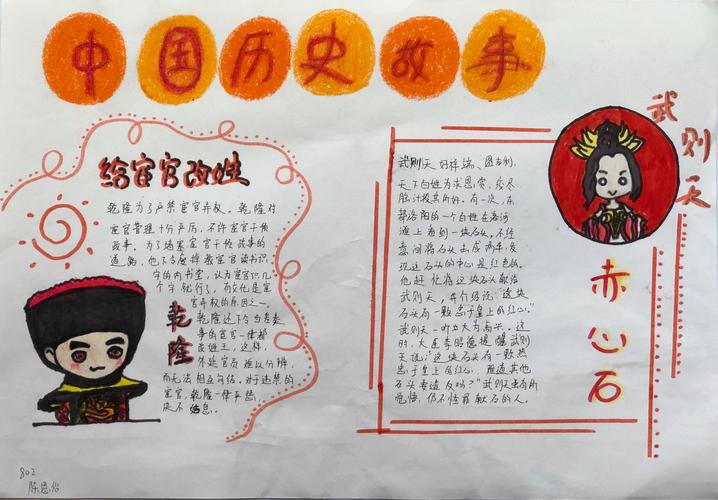 中国历史故事
给宦官改姓
乾隆为了严禁宦官弄权。乾隆对
宦官管理十分严厉，不许宦官干预
政事。为了堵塞宦官干预政事的
道路，他下令废掉教宦官读书识
字的内书堂，认为宦官识几
个字就行了，而文化是宦
官弄权的原因之一。
乾隆还下令当奏
事的宦官一律都
改姓王，这样，
外廷官员难以分辨，
而无法相互勾结。对于违禁的
宦官，乾隆一律严惩，
决不姑息。
乾隆
武则天
武则天好祥瑞、图吉利，
天下百姓为求恩赏，绞尽
脑汁投其所好。有一次，东
都洛阳的一个百姓在洛河
滩上看到一块石头，不经
意间将石头击成两半，发
现这石头的中心是红色的。
他赶忙将这石头献给
武则天，并介绍说："这块
石头有一颗忠于皇上的红心。"
武则天一听立大为高兴。这
时，大臣李昭德提醒武则
天说："这块石头有一颗热
忠于皇上的红心，难道其他
石头专造反吗？"武则天虽有所
觉悟，仍不怪罪献石的人。
赤心石
802